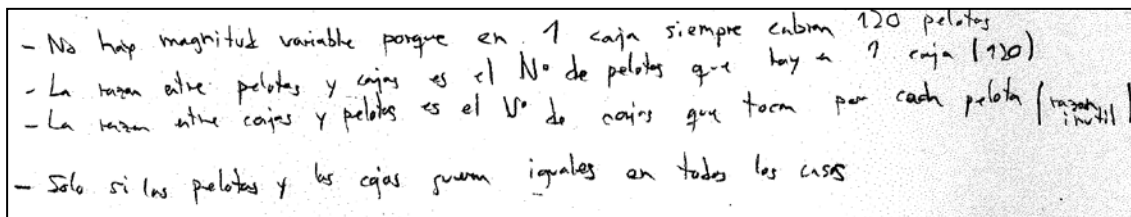 - No hay magnitud variable porque en 1 caja siempre cabran 120 pelotas
- La razon entre pelotas y cajas es el Nº de pelotas que hay en 1 caja (120)
- La razon entre cajas y pelotas es el Nº de cajas que tocan por cada pelota (razon inutil)
- Solo si las pelotas y las cajas fueran iguales en todos los casos